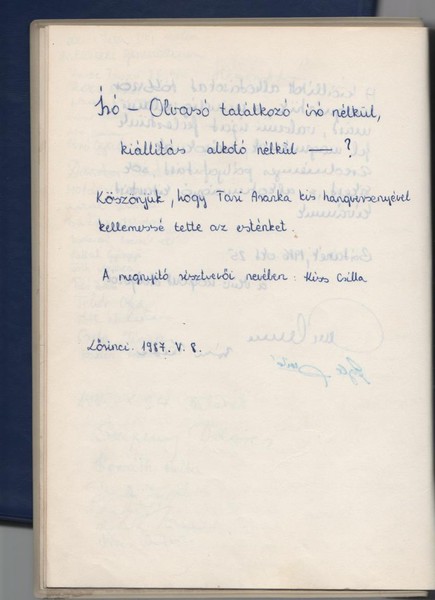 Író – Olvasó találkozó író nélkül,
kiállítás alkotó nélkül — ?
Köszönjük, hogy Tasi Aranka kis hangversenyével
kellemessé tette az esténket.
A megnyitó résztvevői nevében: Kiss Csilla
Lőrinci. 1987. V. 8.